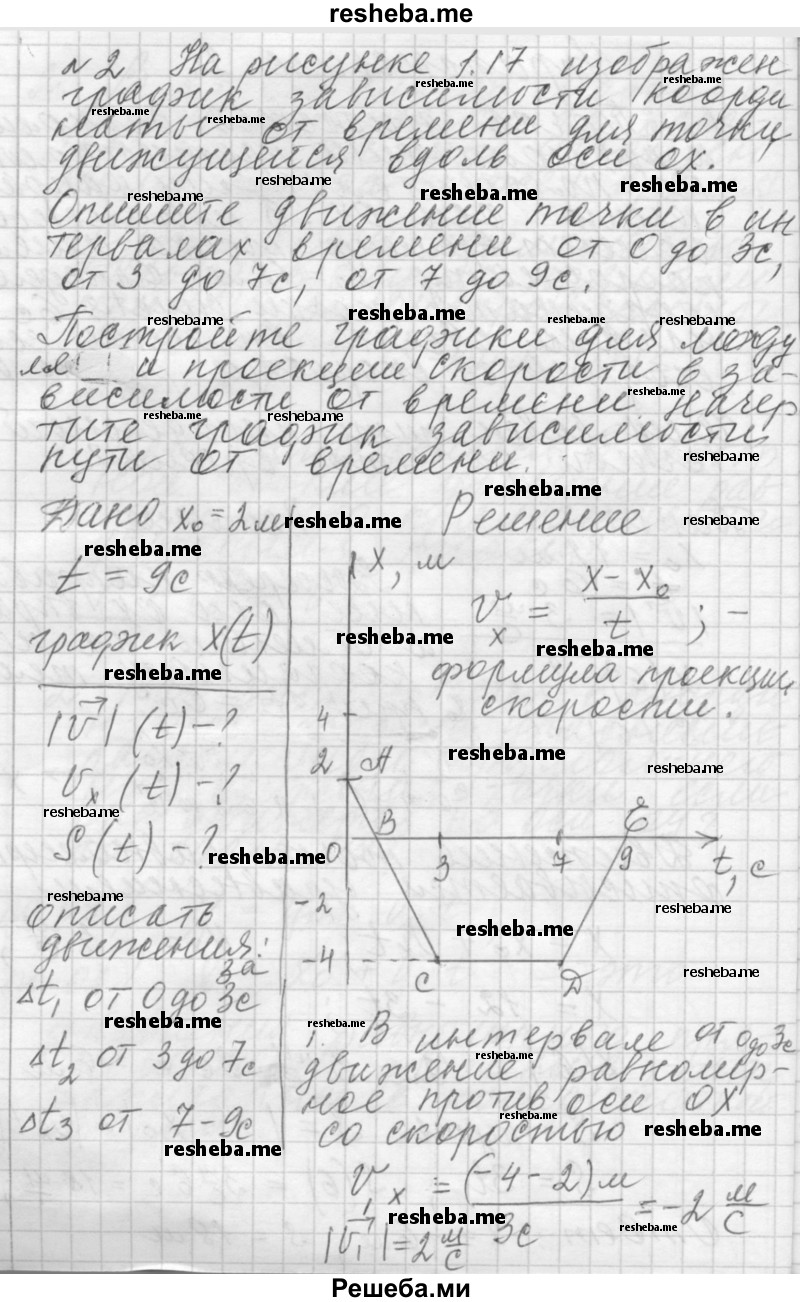 resheba.me
№2 На рисунке 1.17 изображен
график зависимости коорди
наты от времени для точки,
движущейся вдоль оси ОХ.
Опишите движение точки в ин
тервалах времени от 0 до 3с,
от 3 до 7с, от 7 до 9с.
Постройте графики для моду
ля и проекции скорости в за-
висимости от времени. Начер
тите график зависимости
пути от времени.
Дано x₀ = 2м
Решение
t = 9с
график x(t)
|v⃗| (t) - ?
vₓ (t) - ?
S (t) - ?
описать
движения:
за
Δt₁ от 0 до 3с
Δt₂ от 3 до 7с
Δt₃ от 7 - 9с
x, м
vₓ = (x - x₀)/t ; -
формула проекции
скорости.
4
2 A
B E
0 3 7 9 t, с
-2
-4
C D
1. В интервале от 0 до 3с
движение равномер-
ное против оси ОХ
со скоростью
v₁ₓ = (-4-2)м / 3с = -2 м/с
|v⃗₁| = 2 м/с
Решеба.ми